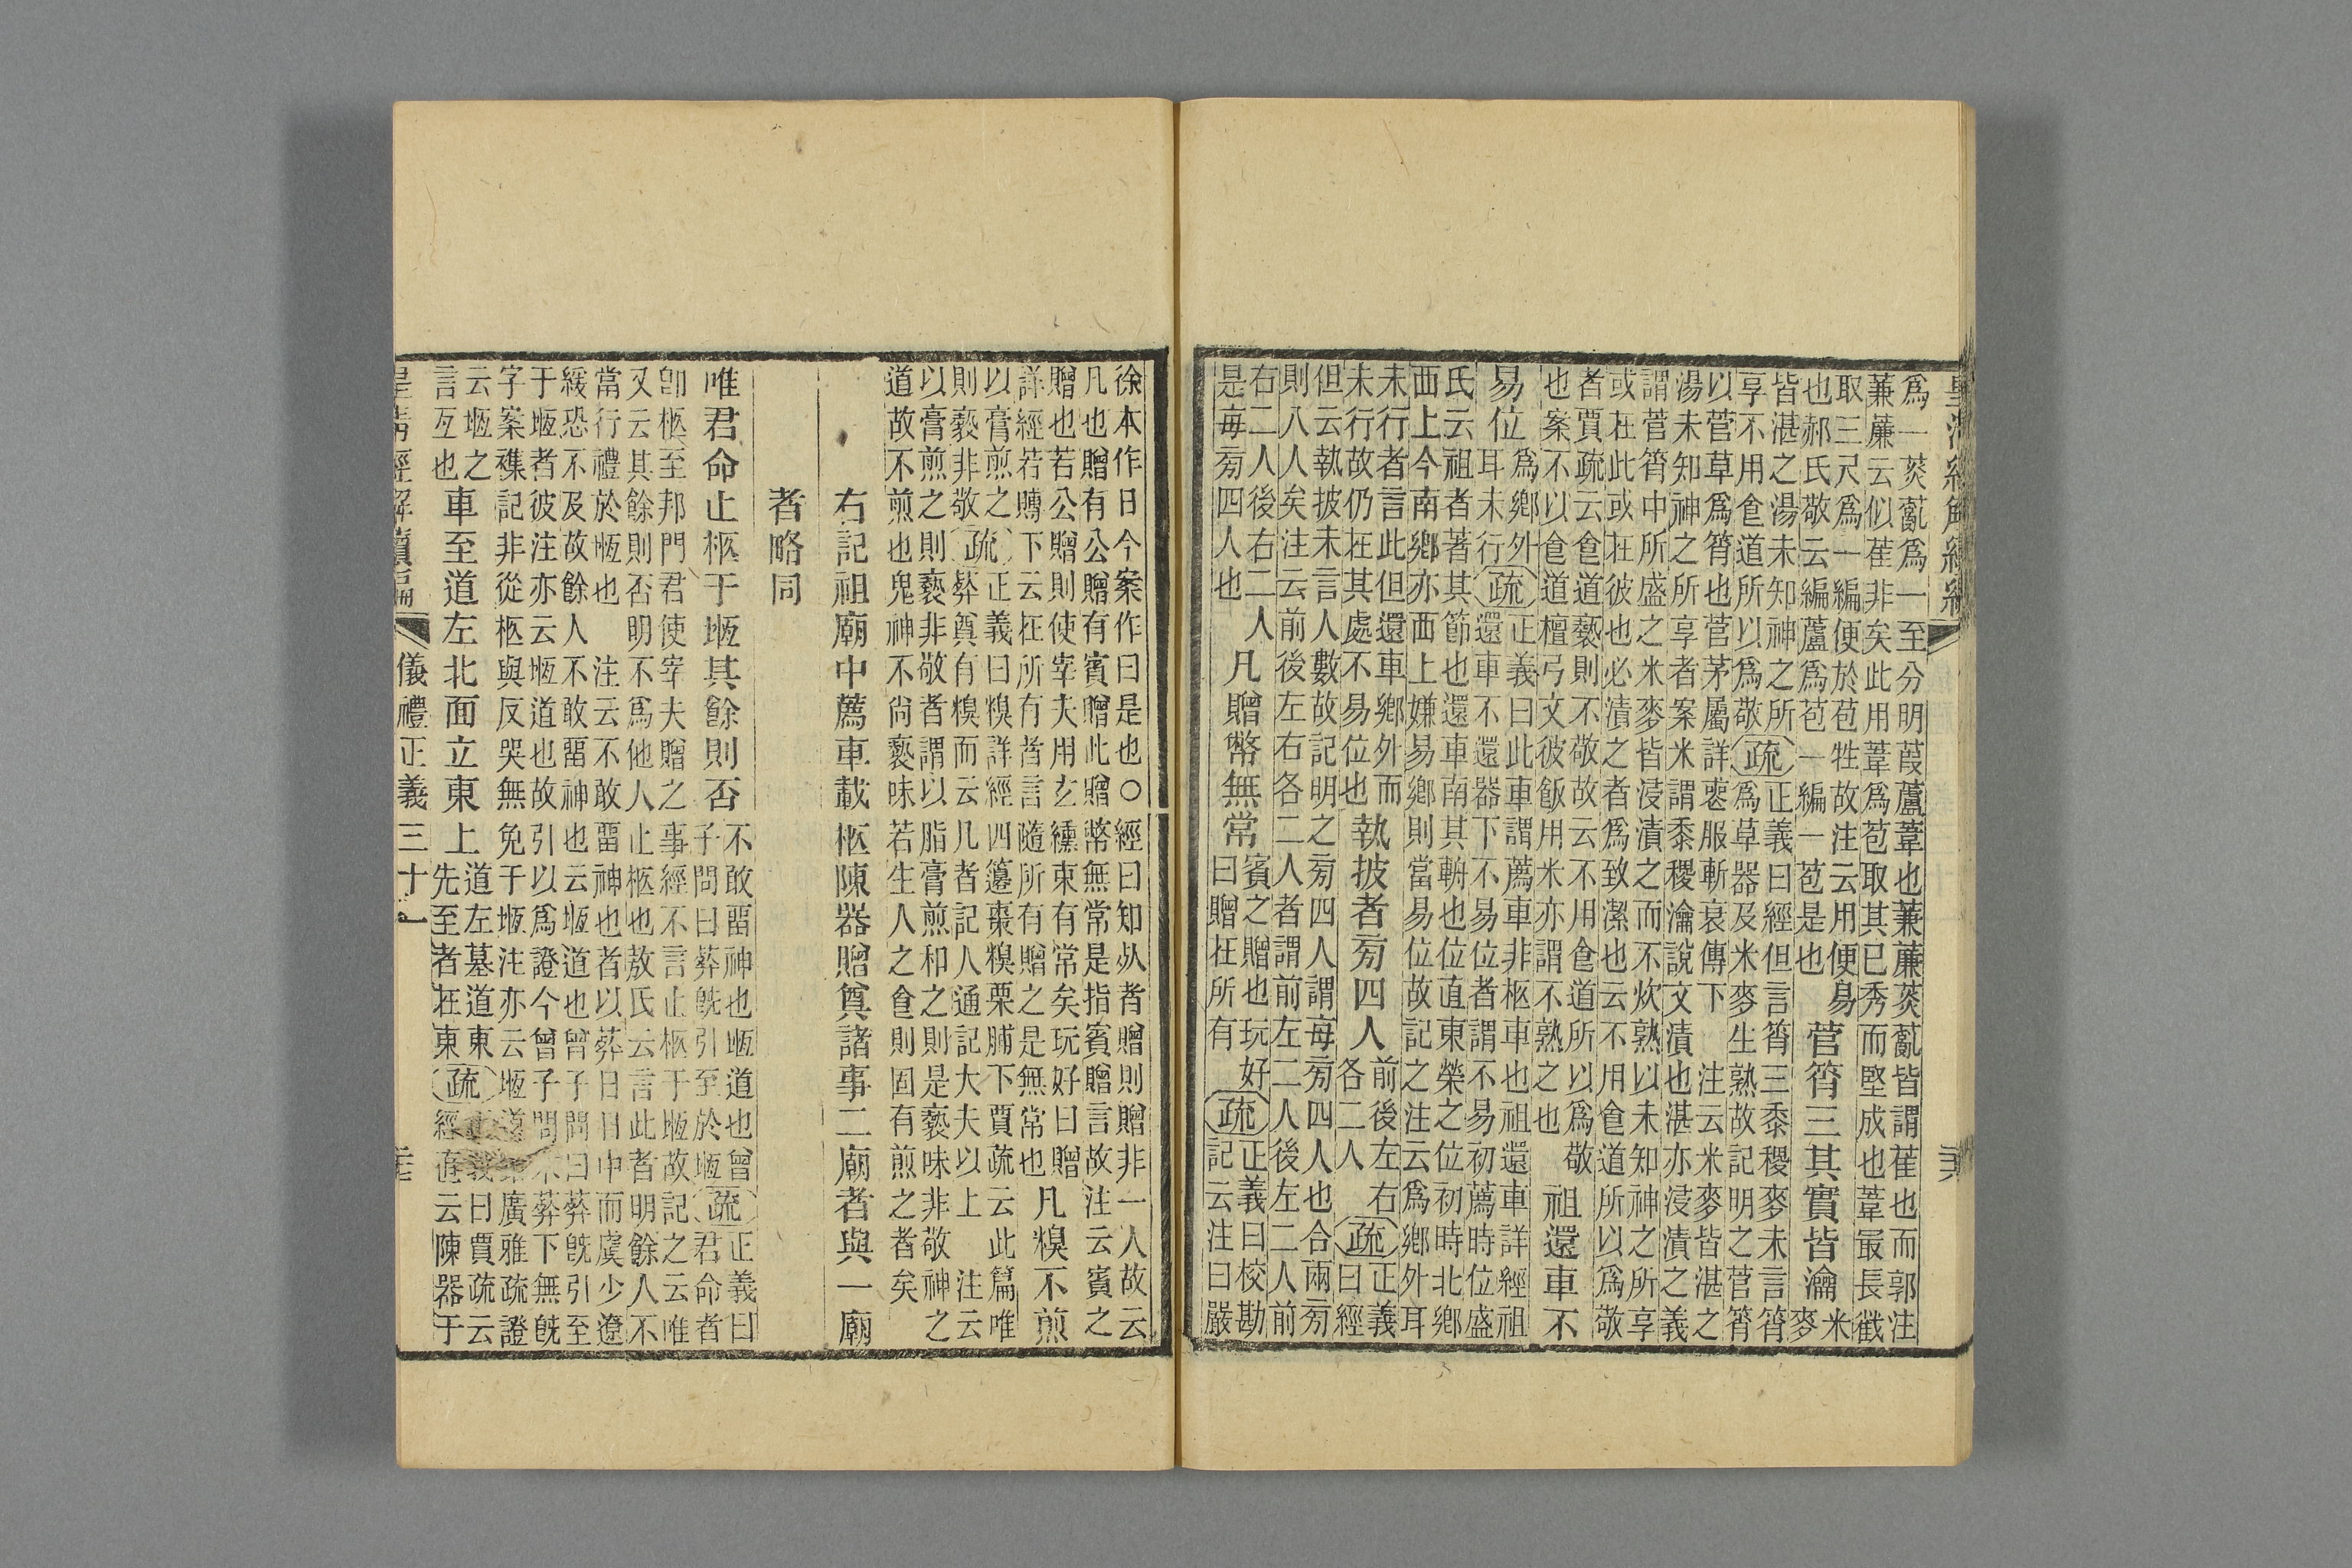 爲一菼薍爲一至分明葭蘆葦也蒹薕菼薍皆謂萑也而郭注
蒹薕云似萑非矣此用葦爲苞取其已秀而堅成也葦最長截
取三尺爲一編便於苞牲故注云用便易
也郝氏敬云編蘆爲苞一編一苞是也
菅筲三其實皆瀹
米
麥
皆湛之湯未知神之所
享不用食道所以爲敬
疏
正義曰經但言筲三黍稷麥未言筲
爲草器及米麥生熟故記明之菅筲
以菅草爲筲也菅茅屬詳喪服斬衰傳下　注云米麥皆湛之
湯未知神之所享者案米謂黍稷瀹說文漬也湛亦浸漬之義
謂菅筲中所盛之米麥皆浸漬之而不炊熟以未知神之所享
或在此或在彼也必漬之者爲致潔也云不用食道所以爲敬
者賈疏云食道褻則不敬故云不用食道所以爲敬
也案不以食道檀弓文彼飯用米亦謂不熟之也
祖還車不
易位
爲鄉外
耳未行
疏
正義曰此車謂薦車非柩車也祖還車詳經祖
還車不還器下不易位者謂不易初薦時位盛
氏云祖者著其節也還車南其輈也位直東榮之位初時北鄉
西上今南鄉亦西上嫌易鄉則當易位故記之注云爲鄉外耳
未行者言此但還車鄉外而
未行故仍在其處不易位也
執披者旁四人
前後左右
各二人
疏
正義
曰經
但云執披未言人數故記明之旁四人謂每旁四人也合兩旁
則八人矣注云前後左右各二人者謂前左二人後左二人前
右二人後右二人
是每旁四人也
凡贈幣無常
賓之贈也玩好
曰贈在所有
疏
正義曰校勘
記云注曰嚴
徐本作日今案作曰是也○經曰知死者贈則贈非一人故云
凡也贈有公贈有賓贈此贈幣無常是指賓贈言故注云賓之
贈也若公贈則使宰夫用玄纁束有常矣玩好曰贈
詳經若賻下云在所有者言隨所有贈之是無常也
凡糗不煎
以膏煎之
則褻非敬
疏
正義曰糗詳經四籩棗糗栗脯下賈疏云此篇唯
葬奠有糗而云凡者記人通記大夫以上　注云
以膏煎之則褻非敬者謂以脂膏煎和之則是褻味非敬神之
道故不煎也鬼神不尚褻味若生人之食則固有煎之者矣
右記祖廟中薦車載柩陳器贈奠諸事二廟者與一廟
者略同
唯君命止柩于堩其餘則否
不敢畱神也堩道也曾
子問曰葬旣引至於堩
疏
正義曰
君命者
卽柩至邦門君使宰夫贈之事經不言止柩于堩故記之云唯
又云其餘則否明不爲他人止柩也敖氏云言此者明餘人不
當行禮於堩也　注云不敢畱神也者以葬日日中而虞少遼
緩恐不及故餘人不敢畱神也云堩道也曾子問曰葬旣引至
于堩者彼注亦云堩道也故引以爲證今曾子問本葬下無旣
字案襍記非從柩與反哭無免于堩注亦云堩道案廣雅疏證
云堩之
言亙也
車至道左北面立東上
道左墓道東
先至者在東
疏
正義曰賈疏云
經直云陳器于
儀禮正義三十一